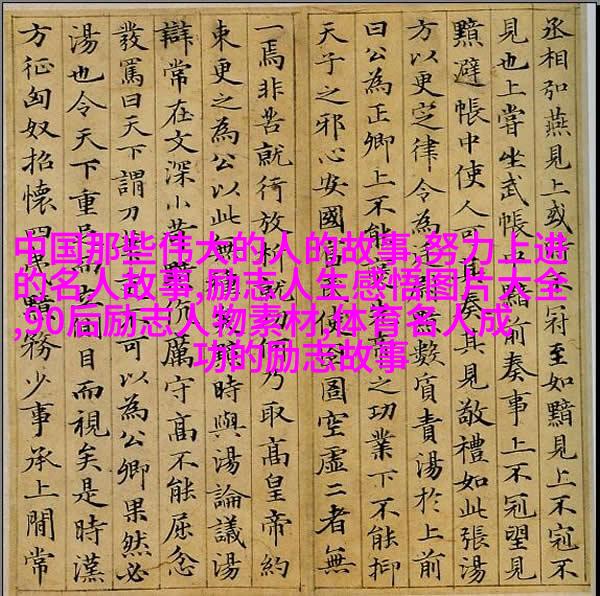 中国那些伟大的人的故事,努力上进
的名人故事,励志人生感悟图片大全
,90后励志人物素材,体育名人成
功的励志故事
丞相弘燕見上或不冠至如黯見上不冠不
見也上嘗坐武帳中黯前奏事上不冠望見
黯避帳中使人可其奏其見敬禮如此張湯
方以更定律令為數質責湯於上前
曰公為正卿上不能帝之功業下不能抑
天子之邪心安國富使圄空虛二者無
一焉非苦就行放析就何乃取高皇帝約
束更之為公以此無時與湯論議湯
辯常在文深小苛伉厲守高不能屈忿
發罵曰天下謂刀筆可以為公卿果然必
湯也令天下重足而目而視矣是時漢
方征匈奴招懷四夷黯務少事承上間常